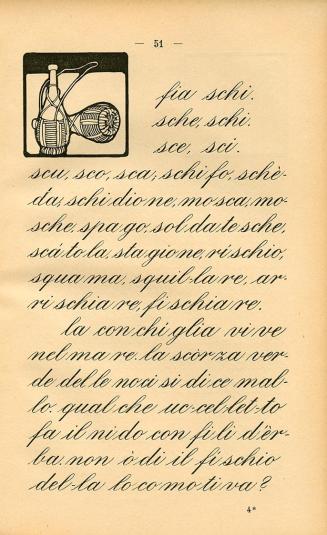 — 51 —
fia schi.
sche, schi.
sce, sci.
scu, sco, sca; schi fo, schè-
da; schi dio ne, mo sca, mo-
sche, spa go, sol da te sche,
scá to la, sta gio ne, ri schio,
squa ma, squil-la re, ar-
ri schia re, fi schia re.
la con chi glia vi ve
nel ma re. la scòr za ver-
de del-le no ci si di ce mal-
lo. qual che uc-cel-let-to
fa il ni do con fi li d'èr-
ba. non ò di il fi schio
del-la lo co mo ti va?
4*